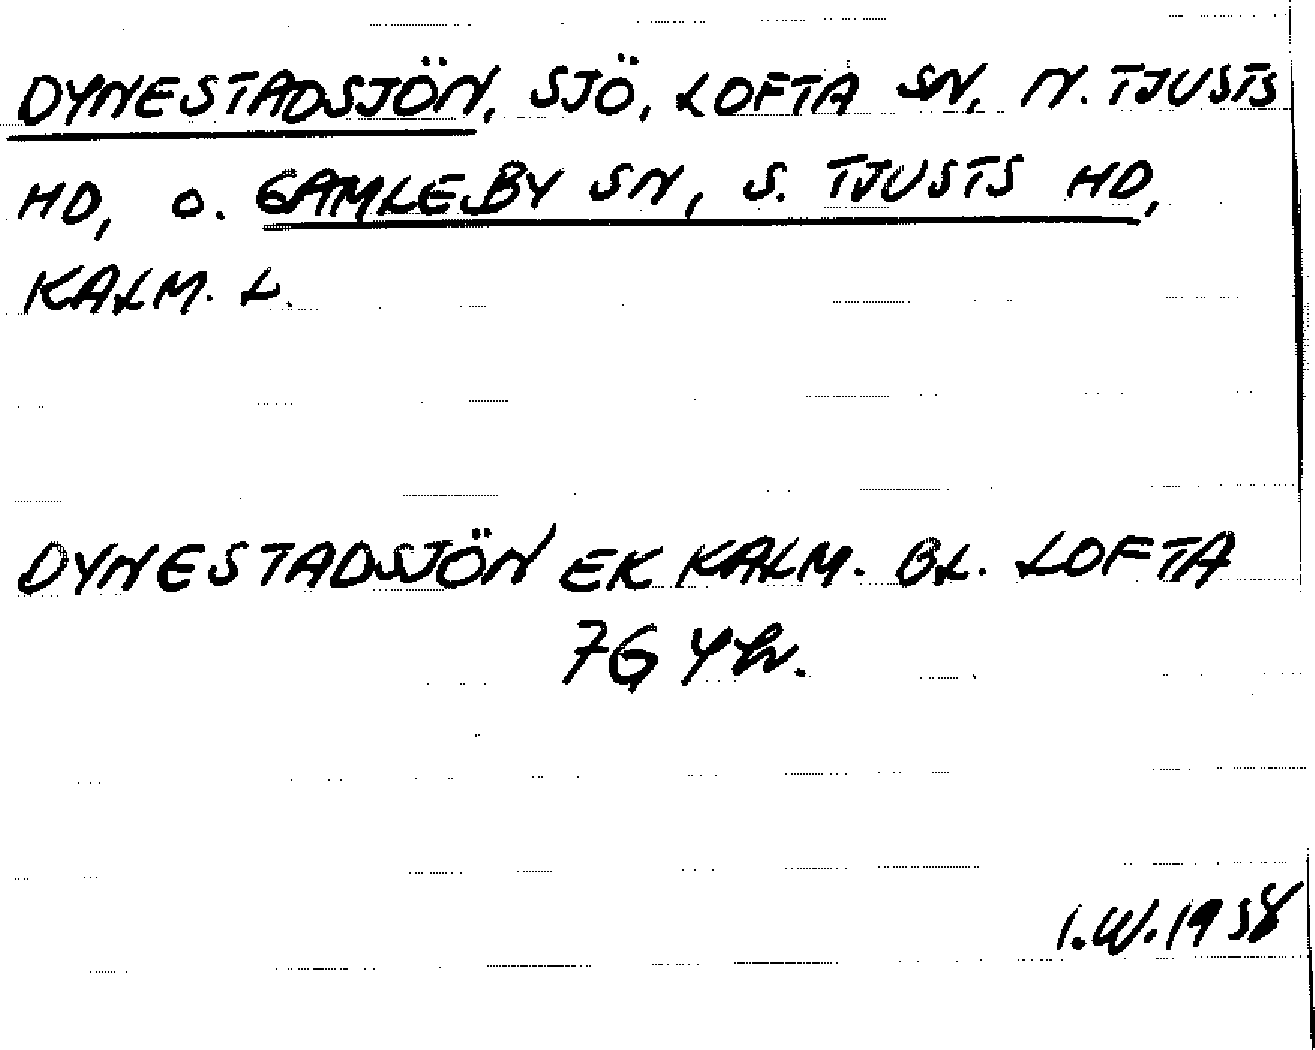 DYNESTADSJÖN, SJÖ, LOFTA SN, N. TJUSTS
HD, O. GAMLEBY SN, S. TJUSTS HD,
KALM. L.
DYNESTADSJÖN EK KALM. BL. LOFTA
7G
I.W. 1958